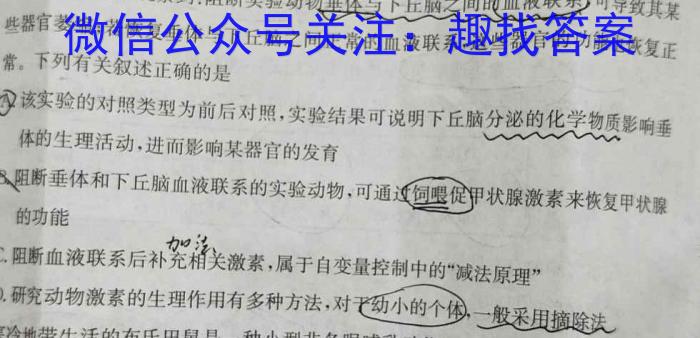 阻断实验动物垂体与下丘脑之间的血液联系,可导致其某
微信公众号关注：趣找答案
些器官萎
垂体与下丘脑之间正常的血液联系
恢复正
常。下列有关叙述正确的是
A.该实验的对照类型为前后对照,实验结果可说明下丘脑分泌的化学物质影响垂
体的生理活动,进而影响某器官的发育
B.阻断垂体和下丘脑血液联系的实验动物,可通过饲喂促甲状腺激素来恢复甲状腺
的功能
加法
C.阻断血液联系后补充相关激素,属于自变量控制中的“减法原理”
D.研究动物激素的生理作用有多种方法,对于幼小的个体,一般采用摘除法